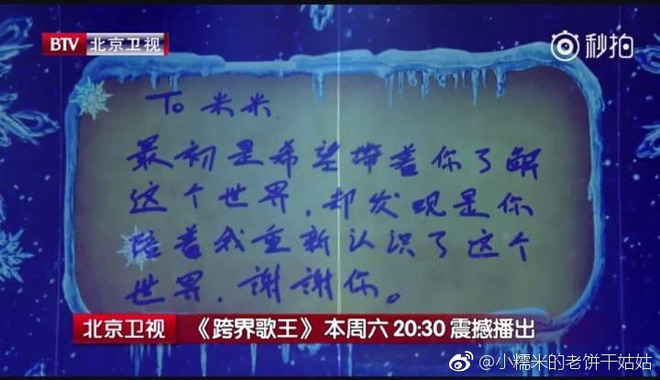 BTV 北京卫视
秒拍
To 米米
最初是希望带着你了解
这个世界,却发现是你
陪着我重新认识了这个
世界,謝謝你。
北京卫视 《跨界歌王》本周六 20:30 震撼播出
@小糯米的老饼干姑姑